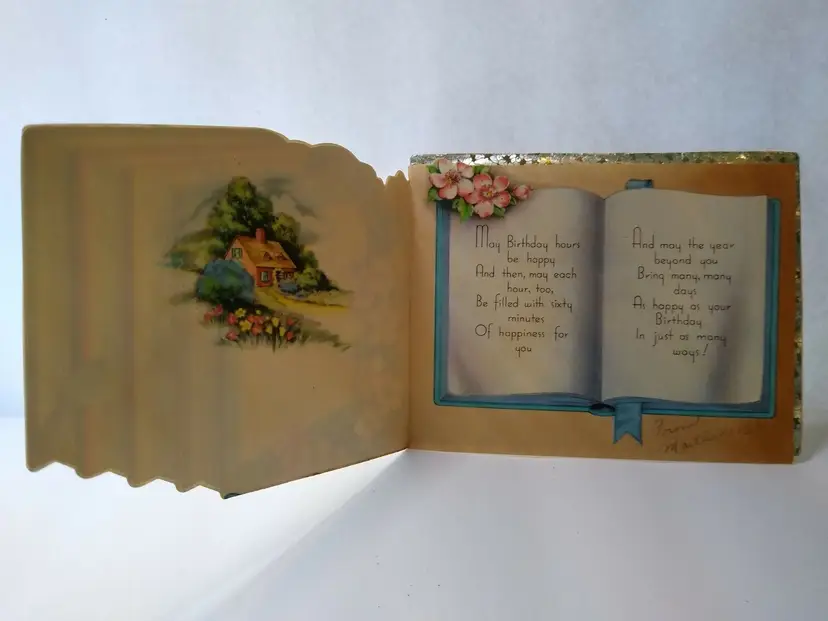 May Birthday hours
be happy
And then, may each
hour, too,
Be filled with sixty
minutes
Of happiness for
you
And may the year
beyond you
Bring many, many
days
As happy as your
Birthday
In just as many
ways!
From